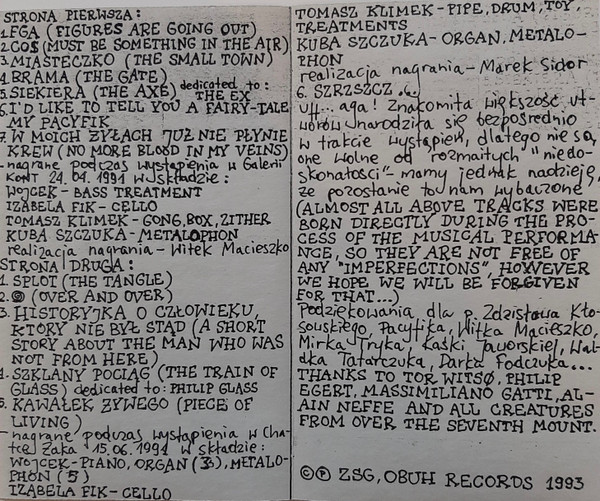 STRONA PIERWSZA:
1. FGA (FIGURES ARE GOING OUT)
2. COŚ (MUST BE SOMETHING IN THE AIR)
3. MIASTECZKO (THE SMALL TOWN)
4. BRAMA (THE GATE)
5. SIEKIERA (THE AXE) dedicated to: THE EX
6. I'D LIKE TO TELL YOU A FAIRY-TALE
MY PACYFIK
7. W MOICH ŻYŁACH JUŻ NIE PŁYNIE
KREW (NO MORE BLOOD IN MY VEINS)
-nagrane podczas wystąpienia w Galerii
KONT 24.04.1991 w składzie:
WOJCEK - BASS TREATMENT
IZABELA FIK - CELLO
TOMASZ KLIMEK - GONG, BOX, ZITHER
KUBA SZCZUKA - METALOPHON
realizacja nagrania - Witek Macieszko
STRONA DRUGA:
1. SPLOT (THE TANGLE)
2. (OVER AND OVER)
3. HISTORYJKA O CZŁOWIEKU,
KTÓRY NIE BYŁ STĄD (A SHORT
STORY ABOUT THE MAN WHO WAS
NOT FROM HERE)
4. SZKLANY POCIĄG (THE TRAIN OF
GLASS) dedicated to: PHILIP GLASS
5. KAWAŁEK ŻYWEGO (PIECE OF
LIVING)
- nagrane podczas wystąpienia w Cha-
tce Żaka 15.06.1991 w składzie:
WOJCEK - PIANO, ORGAN (3), METALO-
PHON (5)
IZABELA FIK - CELLO
TOMASZ KLIMEK - PIPE, DRUM, TOY,
TREATMENTS
KUBA SZCZUKA - ORGAN, METALO-
PHON
realizacja nagrania - Marek Sidor
6. SZRZSZCZ...
uff... aga! Znakomita większość ut-
worów narodziła się bezpośrednio
w trakcie wystąpień, dlatego nie są
one wolne od rozmaitych "niedo-
skonałości" - mamy jednak nadzieję,
że pozostanie to nam wybaczone
(ALMOST ALL ABOVE TRACKS WERE
BORN DIRECTLY DURING THE PRO-
CESS OF THE MUSICAL PERFORMA-
NCE, SO THEY ARE NOT FREE OF
ANY "IMPERFECTIONS", HOWEVER
WE HOPE WE WILL BE FORGIVEN
FOR THAT...)
Podziękowania dla p. Zdzisława Kło-
sowskiego, Pacyfika, Witka Macieszko,
Mirka Tryka, Kaśki Jaworskiej, Wal-
dka Tatarczuka, Darka Fodczuka...
THANKS TO TOR WITSØ, PHILIP
EGERT, MASSIMILIANO GATTI, AL-
AIN NEFFE AND ALL CREATURES
FROM OVER THE SEVENTH MOUNT.
©℗ ZSG, OBUH RECORDS 1993